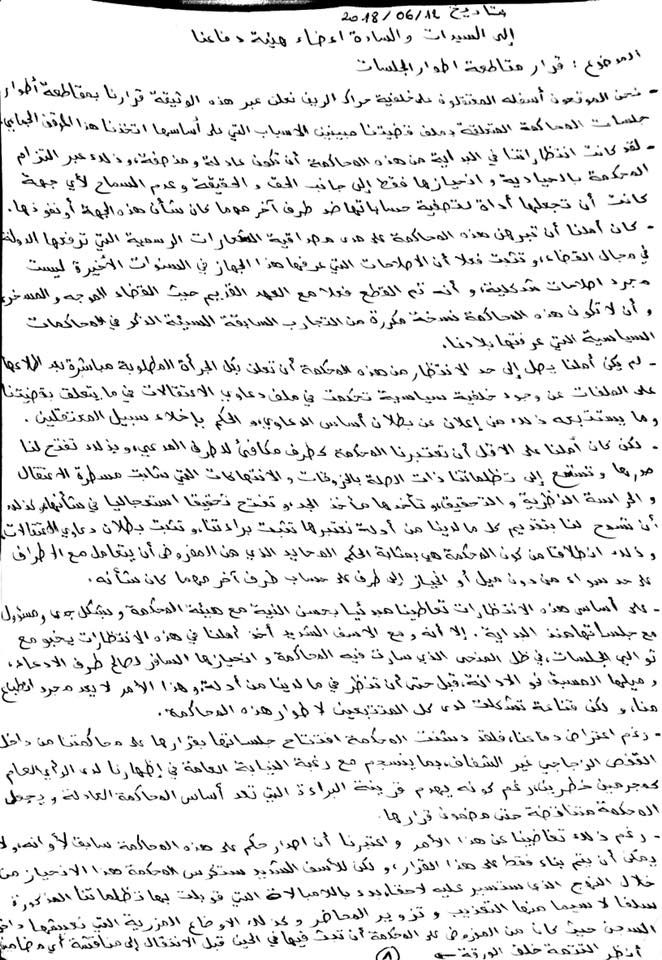 بتاريخ 2018/06/12
إلى السيدات والسادة أعضاء هيئة دفاعنا
الموضوع : قرار مقاطعة أطوار الجلسات
- نحن الموقعون أسفله المعتقلون على خلفية حراك الريف نعلن عبر هذه الوثيقة قرارنا بمقاطعة أطوار
جلسات المحاكمة المتعلقة بملف قضيتنا مبينين الأسباب التي على أساسها اتخذنا هذا الموقف الجماعي.
- لقد كانت انتظاراتنا في البداية من هذه المحاكمة أن تكون عادلة ومنصفة، وذلك عبر التزام
المحكمة بالحيادية و انحيازها فقط إلى جانب الحق و الحقيقة وعدم السماح لأي جهة
كانت أن تجعلها أداة لتصفية حساباتها ضد طرف آخر مهما كان شأن هذه الجهة أو نفوذها.
- كان أملنا أن تبرهن هذه المحاكمة على مدى مصداقية الشعارات الرسمية التي ترفعها الدولة
في مجال القضاء، و تثبت فعلا أن الإصلاحات التي عرفها هذا الجهاز في السنوات الأخيرة ليست
مجرد إصلاحات شكلية، و أنه تم القطع فعلا مع العهد القديم حيث القضاء الموجه و المسخر،
و أن لا تكون هذه المحاكمة نسخة مكررة من التجارب السابقة السيئة الذكر في المحاكمات
السياسية التي عرفتها بلادنا.
- لم يكن أملنا يصل إلى حد الانتظار من هذه المحكمة أن تعلن بكل الجرأة المطلوبة مباشرة بعد اطلاعها
على الملفات عن وجود خلفية سياسية تحكمت في ملف دعاوى الاعتقالات في ما يتعلق بقضيتنا
وما يستتبعه ذلك من إعلان عن بطلان أساس الدعاوي، و الحكم بإخلاء سبيل المعتقلين.
- لكن كان أملنا على الأقل أن تعتبرنا المحكمة كطرف مكافئ للطرف المدعي، و بذلك تفتح لنا
صدرها و تستمع إلى تظلماتنا ذات الصلة بالخروقات و الانتهاكات التي شابت مسطرة الاعتقال
و الحراسة النظرية و التحقيق، و تأخذها مأخذ الجد، و تفتح تحقيقا استعجاليا في شأنها، و كذلك
أن تسمح لنا بتقديم كل ما لدينا من أدلة نعتبرها تثبت براءتنا، و تثبت بطلان دعاوى الاعتقالات
و ذلك انطلاقا من كون المحكمة هي بمثابة الحكم المحايد الذي من المفروض أن يتعامل مع الأطراف
على حد سواء من دون ميل أو انحياز إلى طرف على حساب طرف آخر مهما كان شأنه.
- على أساس هذه الانتظارات تعاطينا مبدئيا بحسن النية مع هيئة المحكمة و بشكل جدي و مسؤول
مع جلساتها منذ البداية. إلا أنه و مع الأسف الشديد أخذ أملنا في هذه الانتظارات يخبو مع
توالي الجلسات، في ظل المنحى الذي سارت فيه المحاكمة و انحيازها السافر لصالح طرف الادعاء،
و ميلها المسبق نحو الإدانة، قبل حتى أن تنظر في ما لدينا من أدلة، و هذا الأمر لا يعد مجرد انطباع
منا، و لكن قناعة تشكلت لدى كل المتتبعين لأطوار هذه المحاكمة.
- رغم اعتراض دفاعنا، فلقد دشنت المحكمة افتتاح جلساتها بقرارها على محاكمتنا من داخل
القفص الزجاجي غير الشفاف، بما ينسجم مع رغبة النيابة العامة في إظهارنا لدى الرأي العام
كمجرمين خطرين، رغم كونه يهدم قرينة البراءة التي تعد أساس المحاكمة العادلة و يجعل
المحكمة متناقضة حتى مضمون قرارها.
- رغم ذلك تغاضينا عن هذا الأمر و اعتبرنا أن إصدار حكم على هذه المحاكمة سابقا لأوانه، ولا
يمكن أن يتم بناء فقط على هذا القرار، و لكن للأسف الشديد ستكرس المحكمة هذا الانحياز من
خلال النهج الذي ستسير عليه لاحقا، بدء باللامبالاة التي قوبلت بها تظلماتنا المذكورة
سلفا لاسيما منها التعذيب و تزوير المحاضر و كذلك الأوضاع المزرية التي نعيشها داخل
السجن حيث كان من المفروض على المحكمة أن تبث فيها في الحين قبل الانتقال إلى مناقشة أي مضامين
أنظر التتمة خلف الورقة ← 1